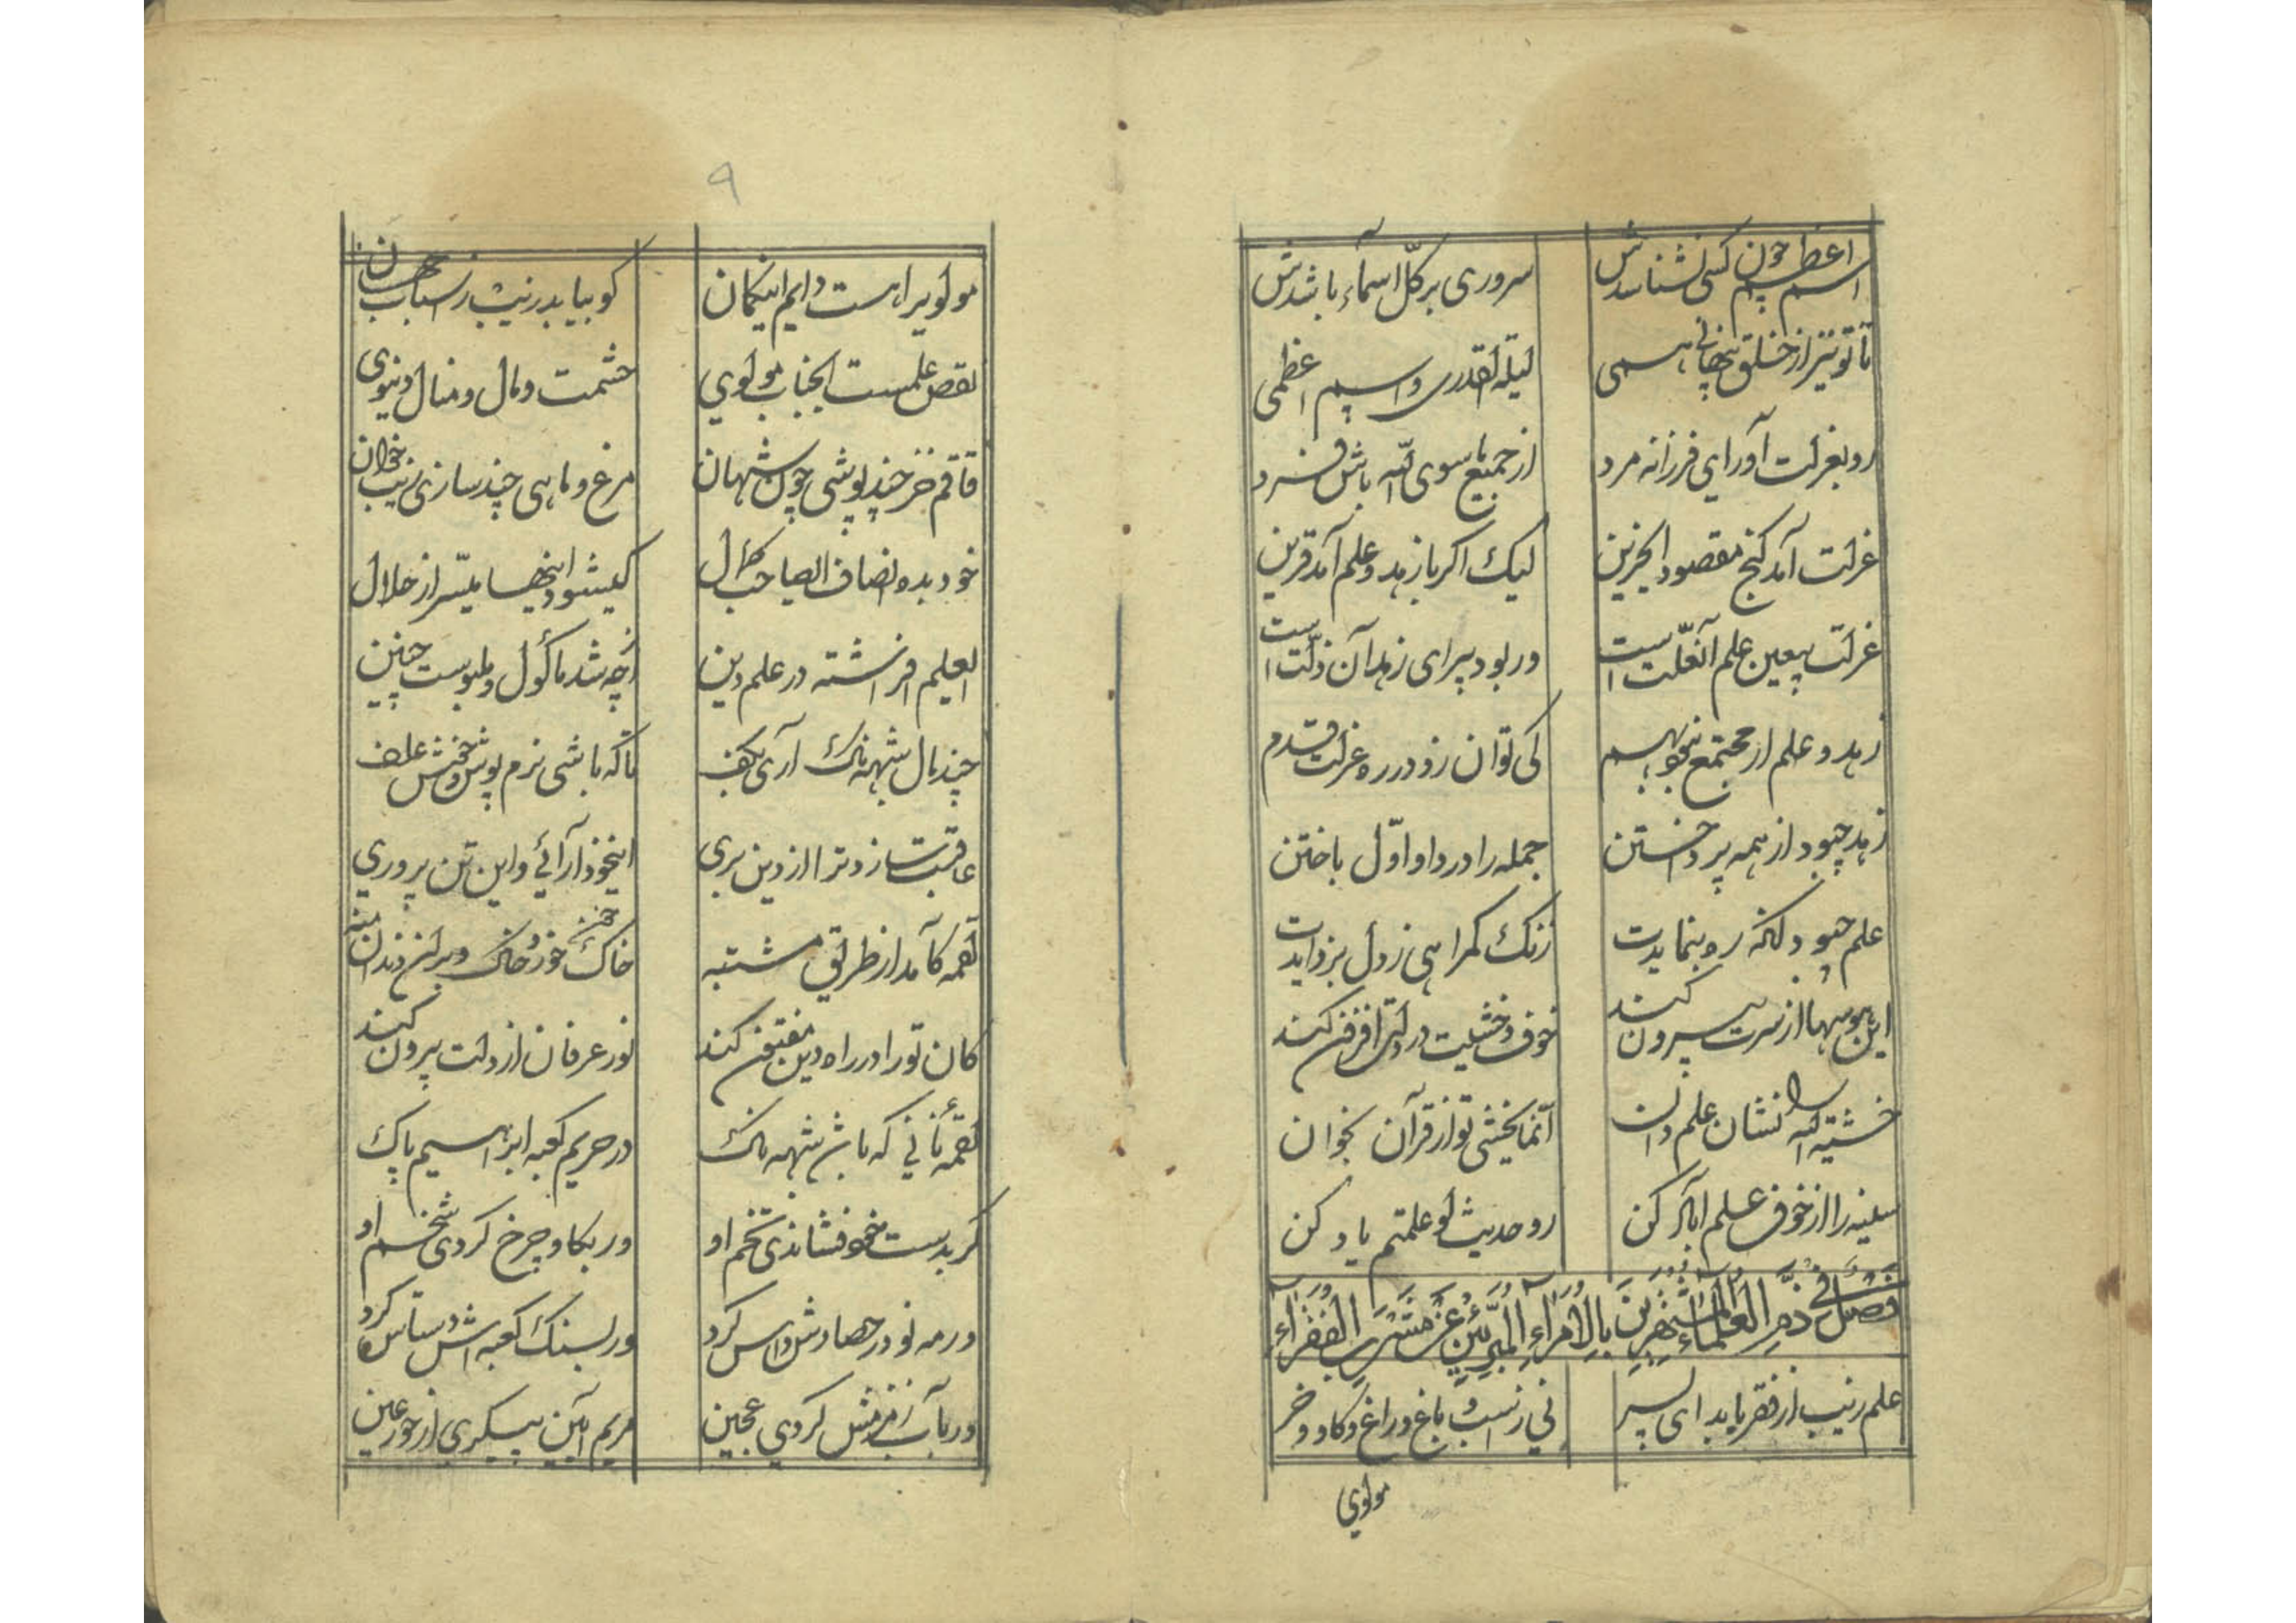 اسم اعظم چون کسی نشناسدش سروری بر کلّ اسماء باشدش
تا تو نیز از خلق پنهانی همی لیلة القدری و اسم اعظمی
رو بعزلت آور ای فرزانه مرد از جمیع ماسوی الله باش فرد
عزلت آمد گنج مقصود ایحزین لیک اگر با زهد و علم آمد قرین
عزلت بیعین علم آن زلّت است ور بود بیزای زهد آن علّت است
زهد و علم ار مجتمع نبود بهم کی توان زد در ره عزلت قدم
زهد چبود از همه پرداختن جمله را در داو اوّل باختن
علم چبود آنکه ره بنمایدت زنک گمراهی ز دل بزدایدت
این هوسها از سرت بیرون کند خوف و خشیت در دلت افزون کند
خشیة الله را نشان علم دان انّما یخشی تو از قرآن بخوان
سینه را از خوف علم آباد کن رو حدیث لو علمتم یاد کن
فصل فی ذمّ العلماء المتشبّهین بالأمراء المتبرّئین عن مشرب الفقراء
علم زیب از فقر یابد ای پسر نی ز اسب و باغ و راغ و گاو و خر
مولوی
۹
مولویرا هست دایم این گمان کو بیابد زینت ز اسباب جهان
نقص علمست ایجناب مولوی حشمت و مال و منال دنیوی
قاقم خز چند پوشی چون شهان مرغ و ماهی چند سازی زیب خوان
خود بده انصاف ایصاحب کمال کی شود اینها میسّر از حلال
ای علم افراشته در علم دین از چه شد مأکول و ملبوست چنین
چند مال شبهه ناک آری بکف تا که باشی نرم پوش و خوش علف
عاقبت سازد ترا از دین بری این خود آرائی و این تن پروری
لقمه کآمد از طریق مشتبه خاک خور خاک و بر آن دندان منه
کان تو را در راه دین مفتون کند نور عرفان از دلت بیرون کند
لقمهٔ نانی که باشد شبهه ناک در حریم کعبه ابراهیم پاک
گر بدست خود فشاندی تخم او ور بگاو چرخ کردی شخم او
ور مه نو در حصادش داس کرد ور بسنک کعبه اش دستاس کرد
ور بآب زمزمش کردی عجین مریم آیین پیکری از حور عین